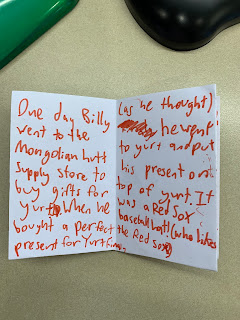 One day Billy
went to the
Mongolian hutt
supply store to
buy gifts for
yurt. When he
bought a perfect
present for Yurt
(as he thought)
he went
to yurt and put
his present on
top of yurt. It
was a Red Sox
baseball hat! (who likes
the Red sox)